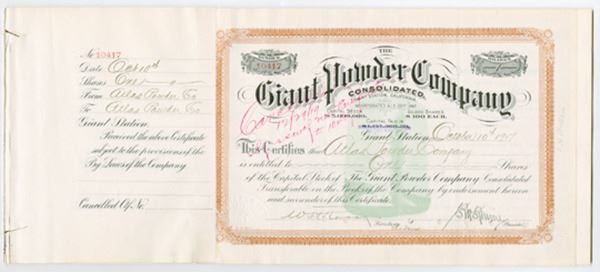 No 10417
Date Oct 10th
Shares One
From Atlas Powder Co
To Atlas Powder Co
Giant Station,
Received the above Certificate
subject to the provisions of the
By Laws of the Company
Cancelled Cf. No.
NUMBER
10417
THE
SHARES
Giant Powder Company
CONSOLIDATED.
GIANT STATION, CALIFORNIA.
INCORPORATED
CAPITAL STOCK
SHARES
$ 100 EACH.
CAPITAL PAID IN
Giant Station, October 10th 1917
This Certifies that Atlas Powder Company
is entitled to One Shares
of the Capital Stock of The Giant Powder Company Consolidated
Transferable on the Books of the Company by endorsement hereon
and surrender of this Certificate.
Secretary
President